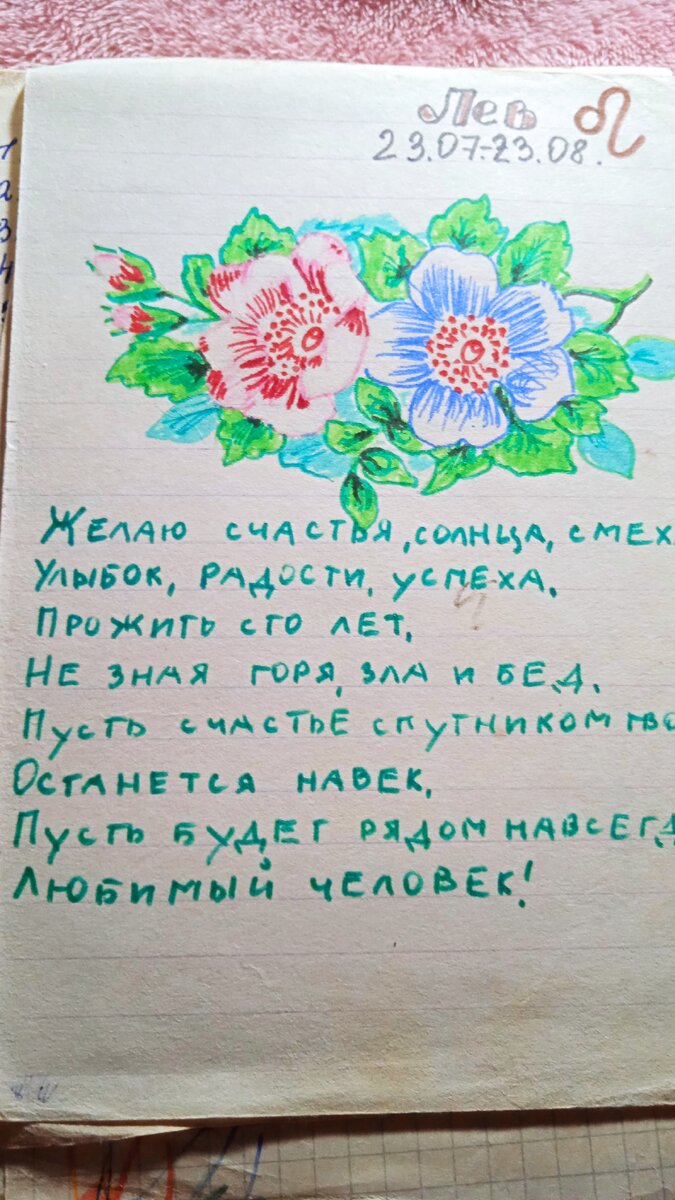 Лев ♌
23.07-23.08.
Желаю счастья, солнца, смех
Улыбок, радости, успеха.
Прожить сто лет,
Не зная горя, зла и бед.
Пусть счастье спутником тво
Останется навек,
Пусть будет рядом навсегд
Любимый человек!
1
2
3
4